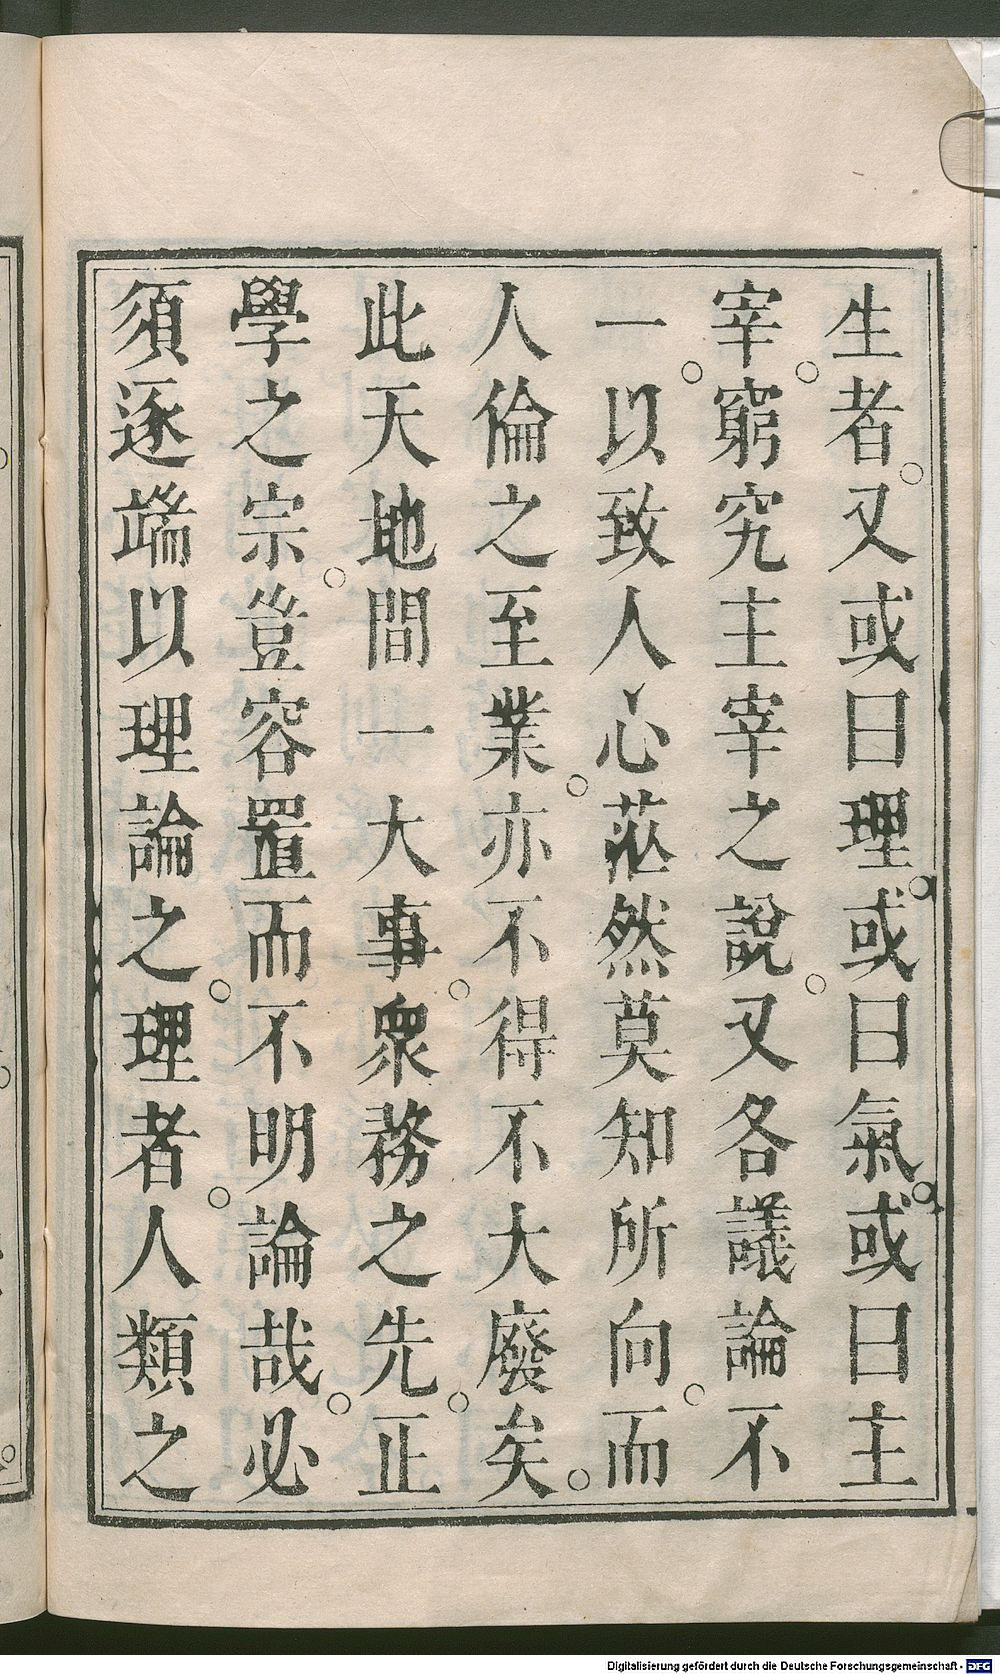 生者。又或曰理。或曰氣。或曰主
宰。窮究主宰之說。又各議論不
一。以致人心茫然莫知所向。而
人倫之至業。亦不得不大廢矣。
此天地間一大事。衆務之先。正
學之宗。豈容置而不明論哉。必
須逐端以理論之。理者。人類之
Digitalisierung gefördert durch die Deutsche Forschungsgemeinschaft - DFG